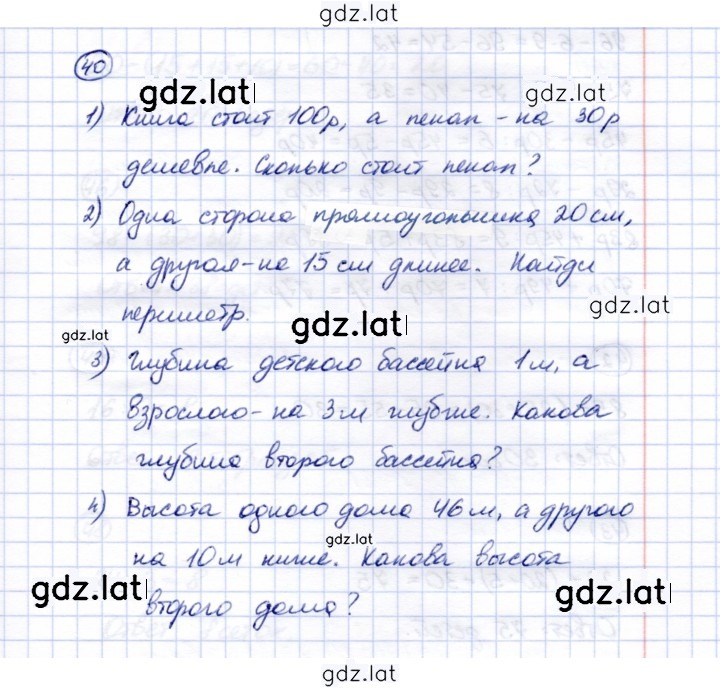 gdz.lat
40
gdz.lat gdz.lat
1) Книга стоит 100р, а пенал - на 30р
дешевле. Сколько стоит пенал?
2) Одна сторона прямоугольника 20 см,
а другая - на 15 см длинее. Найди
периметр.
gdz.lat gdz.lat
3) Глубина детского бассейна 1 м, а
взрослого - на 3 м глубже. Какова
глубина второго бассейна?
4) Высота одного дома 46 м, а другого
gdz.lat
на 10 м ниже. Какова высота
gdz.lat gdz.lat
второго дома?
gdz.lat